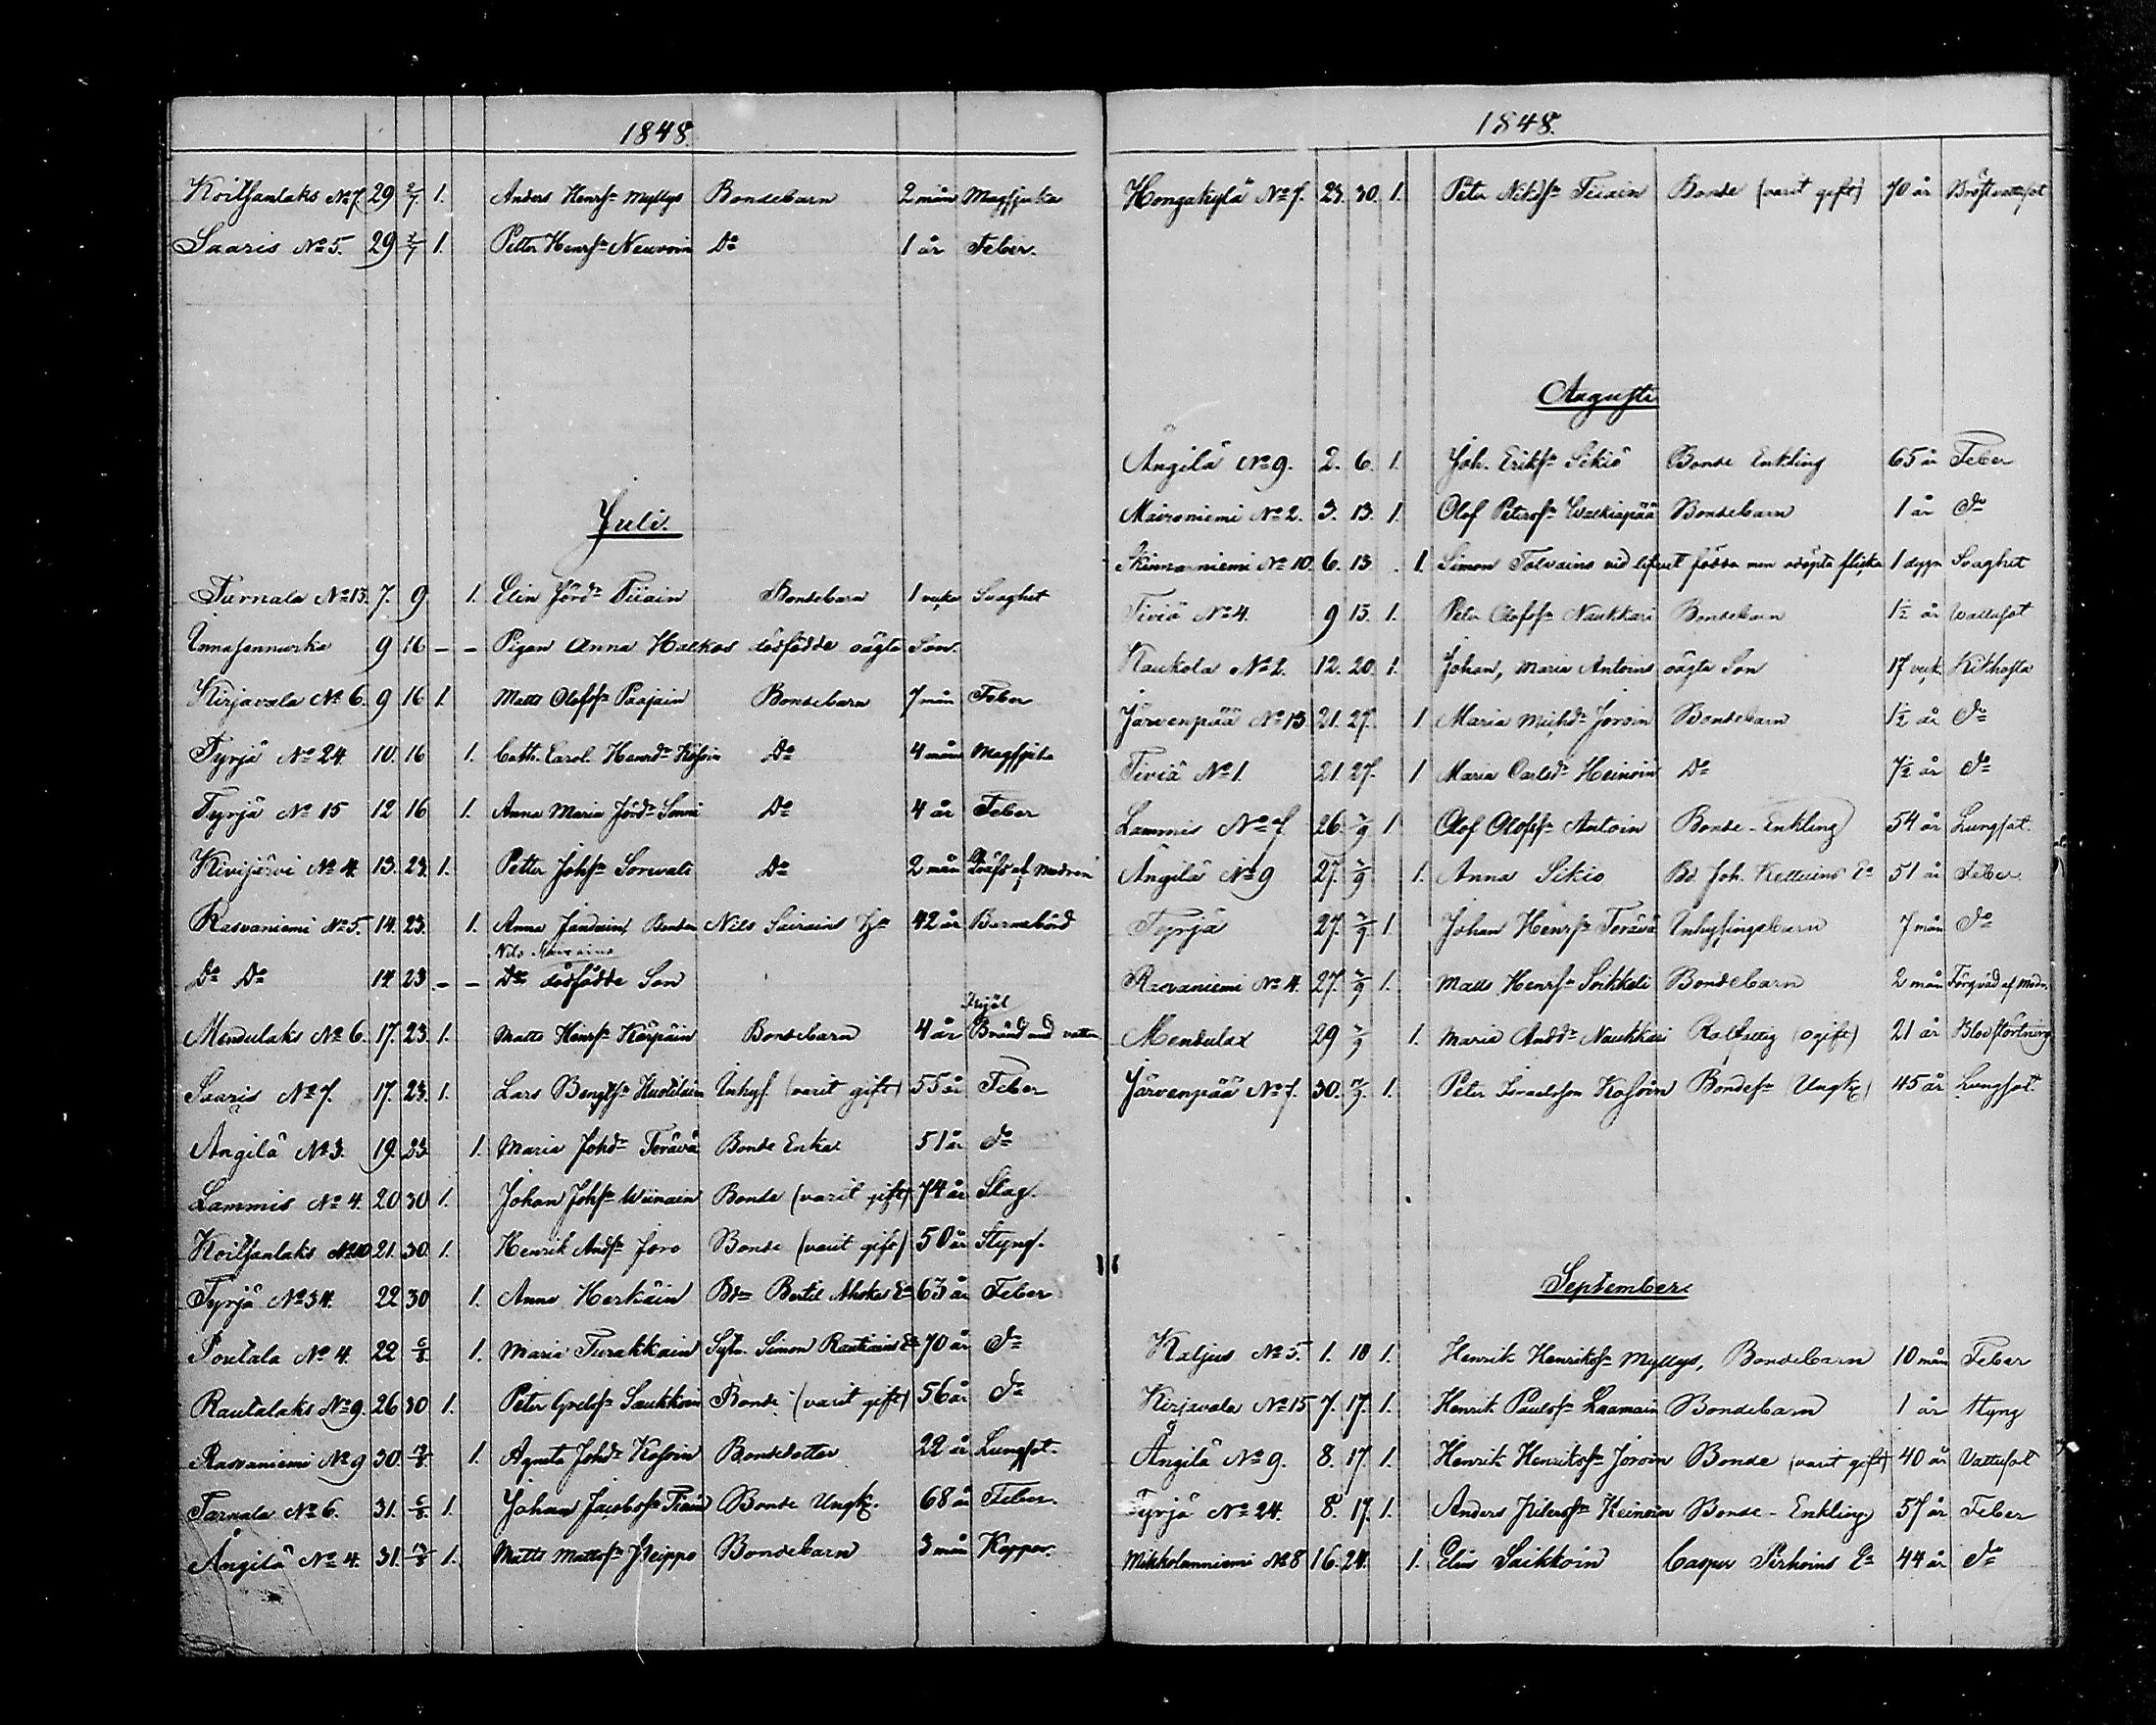 1848.
Koitsanlaks No 7. 29 2/7 1. Anders Henrsn Myllys Bondebarn 2 mån Magsjuka
Saaris No 5. 29 2/7 1. Petter Henrsn Neuvoin Do 1 år Feber.
Juli.
Turnala No 13. 7. 9 1. Elin Jörd Tiiain Bondebarn 1 vecka Svaghet
9 16 – – Pigan Anna Halkos dödfödde oägta Son.
Kirjavala No 6. 9 16 1. Matts Olofsn Paajain Bondebarn 7 mån Feber
Tyrjä No 24. 10. 16 1. Cath. Carol. Henrdr Do 4 mån Magsjuka
Tyrjä No 15 12 16 1. Anna Maria Jörd Do 4 år Feber
Kivijärvi No 4. 13. 23. 1. Petter Johsn Sorvali Do 2 mån af modren
Rasvaniemi No 5. 14. 23. 1. Anna Bonden Nils Sairains Hu 42 år Barnsbörd
Nils Sairains
Do Do 14 23 – – Do dödfödde Son
Mendulaks No 6. 17. 23. 1. Matts Henrsn Kärpäin Bondebarn 4 år Ihjäl Bränd med vatten
Saaris No 7. 17. 23. 1. Lars Bengtsn Huotilain Inhys. (varit gift) 55 år Feber
Ängilä No 3. 19. 23. 1. Maria Johdr Terävä Bonde Enka 51 år do
Lammis No 4. 20 30 1. Johan Johsn Wiinain Bonde (varit gift) 74 år Slag.
Koitsanlaks No 10 21. 30. 1. Henrik Andsn Joro Bonde (varit gift) 50 år Styng.
Tyrjä No 34. 22 30 1. Anna Herkäin Bdn Bertil Ahokas Ea 63 år Feber
Poutala No 4. 22 6/8. 1. Maria Turakkain Sytn. Simon Rautiains Ea 70 år do
Rautalaks No 9. 26 30 1. Peter Grelsn Saukkoin Bonde (varit gift) 56 år do
Rasvaniemi No 9 30. /8. 1. Agneta Johdr Kosoin Bondedotter 22 år Lungsot.
Tarnala No 6. 31. 6/8. 1. Johan Jacobsn Tiain Bonde Ungk. 68 år Feber.
Ängilä No 4. 31. /8 1. Matts Mattsn Peippo Bondebarn 3 mån Koppor.
1848.
Hongakylä No 7. 23. 30. 1. Peter Nilssn Tiiain Bonde (varit gift) 70 år Bröstvattusot
Augusti
Ängilä No 9. 2. 6. 1. Joh. Eriksn Sikiö Bonde Enkling 65 år Feber
Maironiemi No 2. 3. 13. 1. Olof Petersn Walkiapää Bondebarn 1 år do
Skinnarniemi No 10. 6. 13. 1. Simon Tolvains vid lifvet födda men odöpta flicka 1 dygn Svaghet
Tiviä No 4. 9 13. 1. Peter Olofsn Naukkari Bondebarn 1½ år Wattusot
Kaukola No 2. 12. 20. 1. Johan, Maria Antoins oägta Son 17 veck Kikhosta
Järvenpää No 13 21. 27. 1 Maria Michdr Joroin Bondebarn 1½ år do
Tiviä No 1. 21. 27. 1 Maria Carlsdr Heinoin Do 7½ år do
Lammis No 7. 26. /9 1 Olof Olofsn Antoin Bonde-Enkling 54 år Lungsot.
Ängilä No 9 27. /9 1. Anna Sikiö Bd. Joh. Ea 51 år Feber
Tyrjä 27. /9 1. Johan Henrsn Terävä Inhysingsbarn 7 mån do
Rasvaniemi No 4. 27. /9 1. Matts Henrsn Soikkeli Bondebarn 2 mån Förqväd af modr.
Mendulax 29 /9 1. Maria Anddr Naukkari Rotfattig (ogift) 21 år Blodstörtning
Järvenpää No 7. 30. /9. 1. Peter Israelsson Kosoin Bondesn (Ungk) 45 år Lungsot.
September.
Kaljus No 5. 1. 10 1. Henrik Henriksn Myllys, Bondebarn 10 mån Feber
Kirjavala No 15 7. 17. 1. Henrik Paulsn Laamain Bondebarn 1 år Styng
Ängilä No 9. 8. 17 1. Henrik Henriksn Joroin Bonde (varit gift) 40 år Vattusot
Tyrjä No 24. 8. 17. 1. Anders Petersn Heinoin Bonde-Enkling 57 år Feber
Mikkolanniemi No 8 16. 24. 1. Elin Saikkoin Casper Pirhoins Ea 44 år do